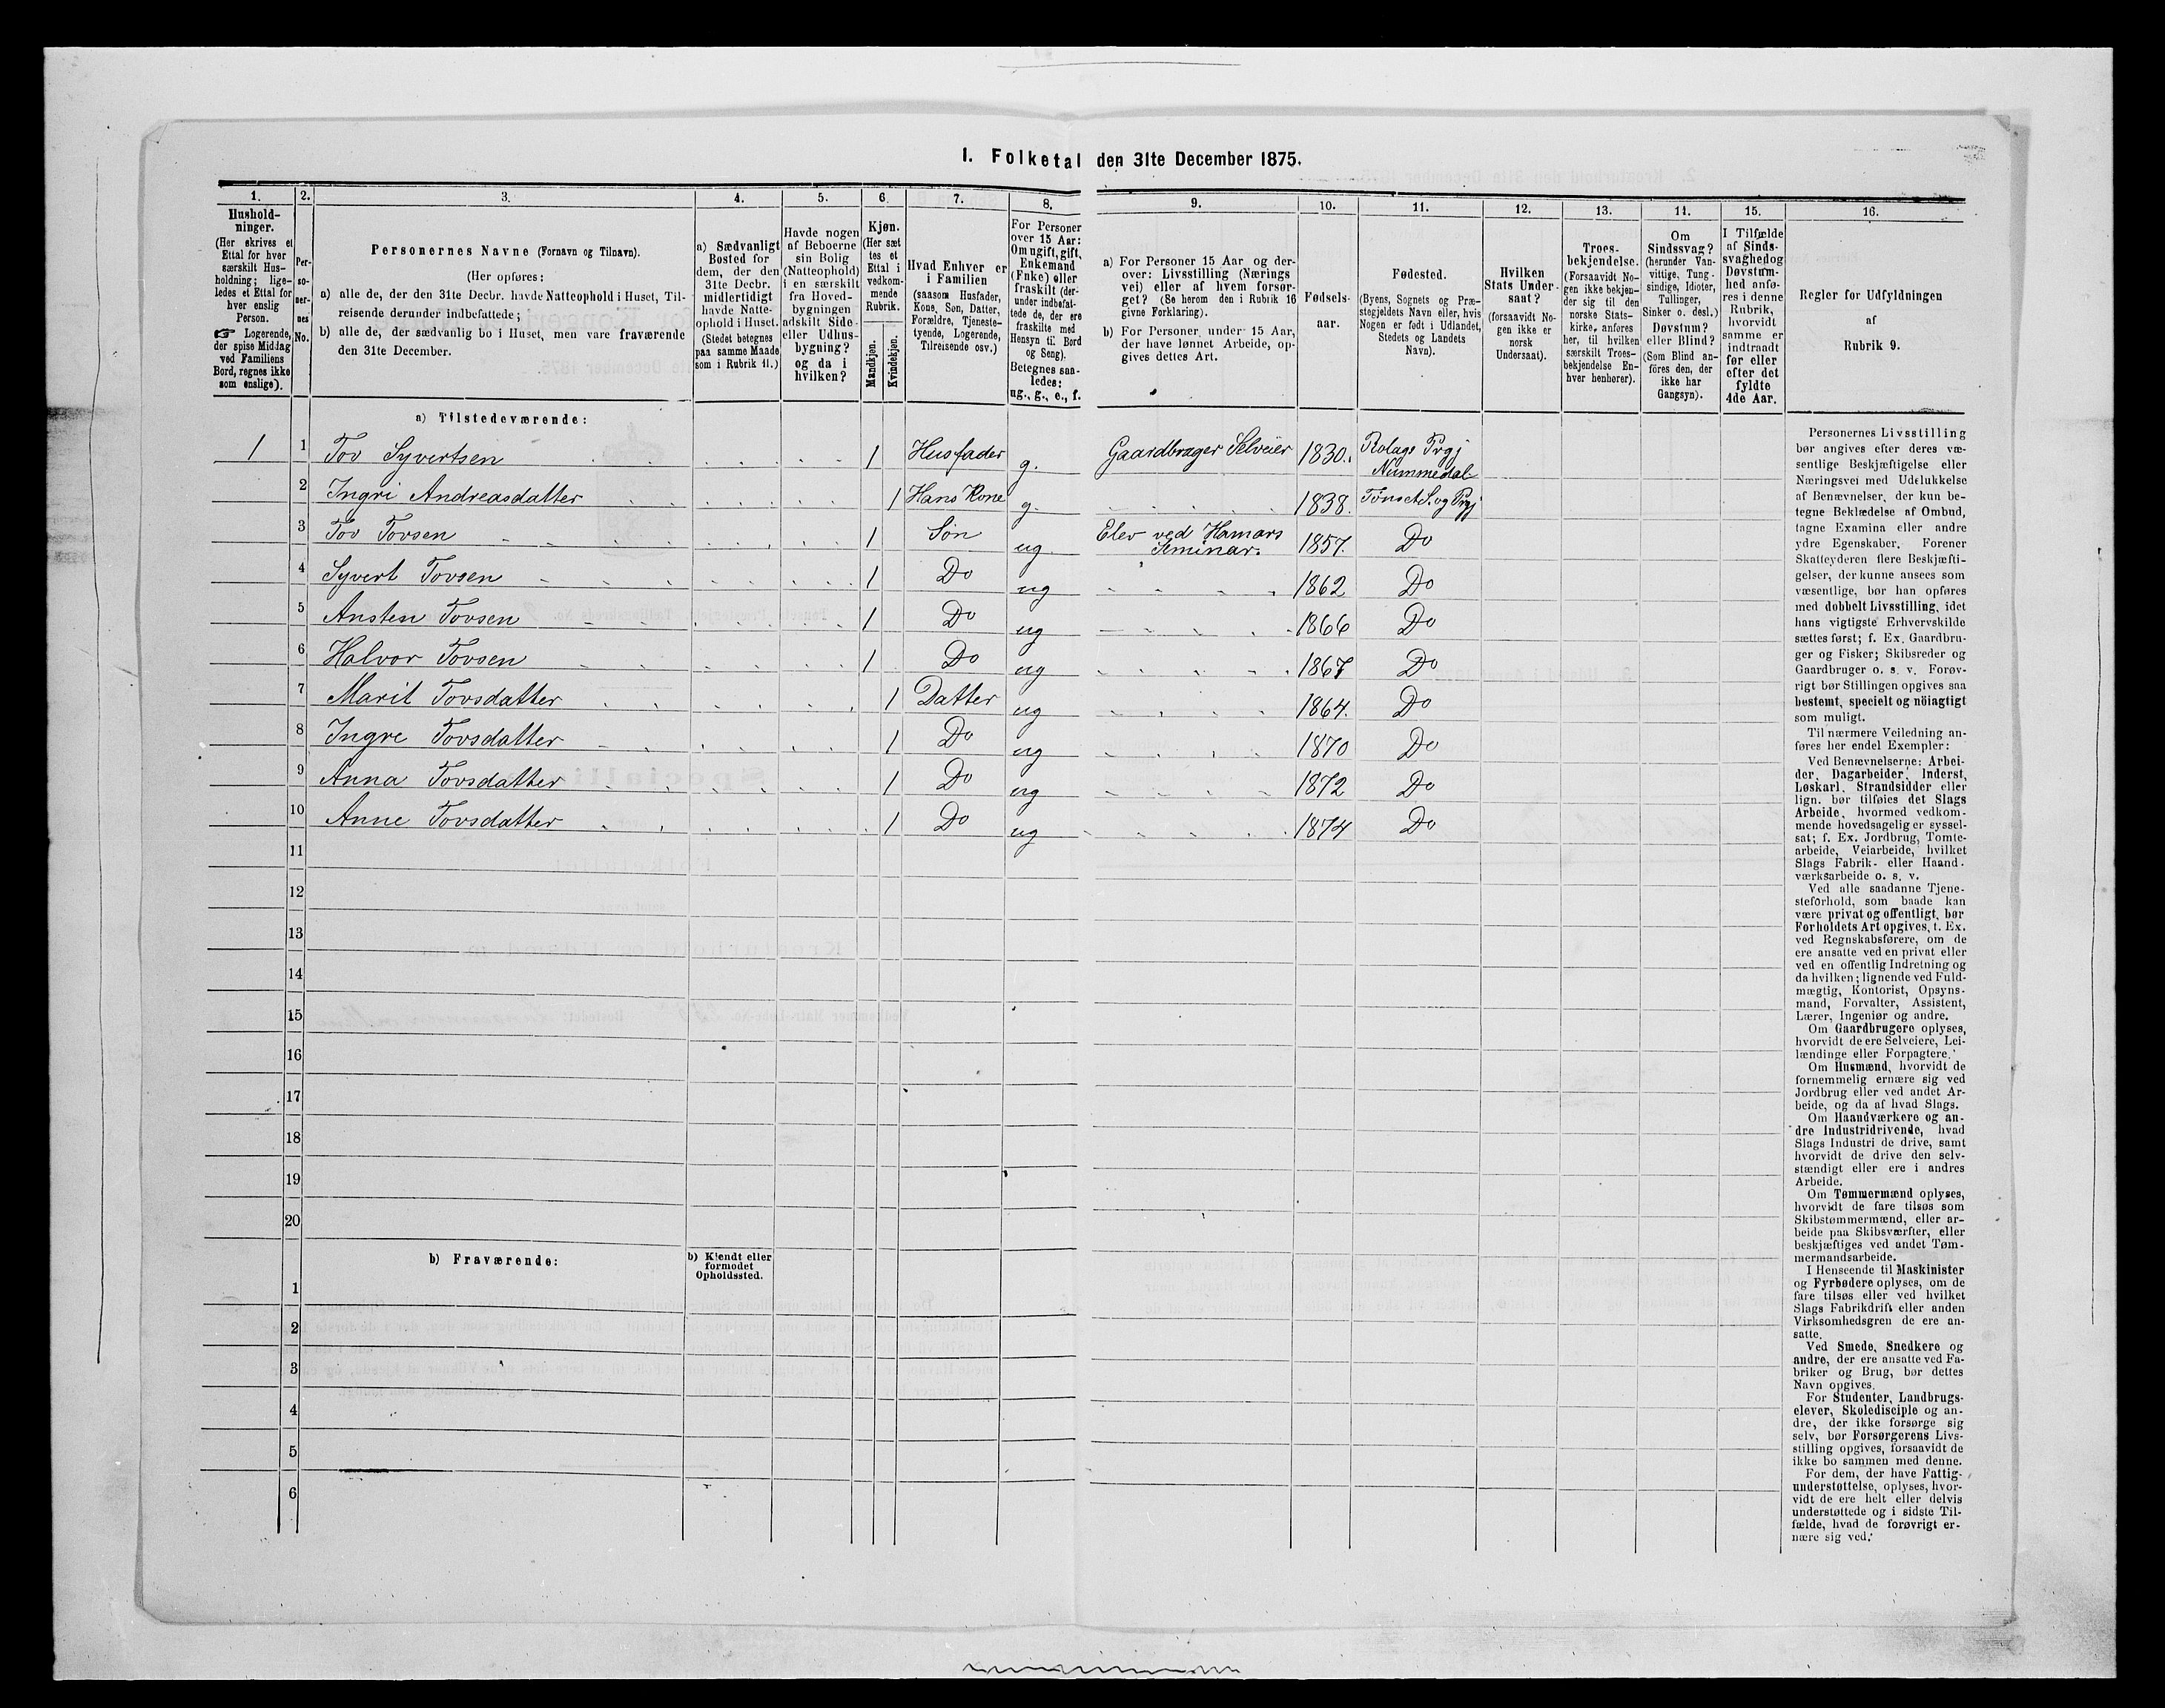 I. Folketal den 31te December 1875.
1.
Hushold-
ninger.
(Her skrives et
Ettal for hver
særskilt Hus-
holdning; lige-
ledes et Ettal for
hver enslig
Person.
☞ Logerende,
der spise Middag
ved Familiens
Bord, regnes ikke
som enslige).
2.
Per-
so-
ner-
nes
No.
3.
Personernes Navne (Fornavn og Tilnavn).
(Her opføres:
a) alle de, der den 31te Decbr. havde Natteophold i Huset, Til-
reisende derunder indbefattede;
b) alle de, der sædvanlig bo i Huset, men vare fraværende
den 31te December.
4.
a) Sædvanligt
Bosted for
dem, der den
31te Decbr.
midlertidigt
havde Natte-
ophold i Huset.
(Stedet betegnes
paa samme Maade
som i Rubrik 11.)
5.
Havde nogen
af Beboerne
sin Bolig
(Natteophold)
i en særskilt
fra Hoved-
bygningen
adskilt Side-
eller Udhus-
bygning?
og da i
hvilken?
6.
Kjøn.
(Her sæt
tes et
Ettal i
vedkom-
mende
Rubrik.
Mandkjøn.
Kvindekjøn.
7.
Hvad Enhver er
i Familien
(saasom Husfader,
Kone, Søn, Datter,
Forældre, Tjeneste-
tyende, Logerende,
Tilreisende osv.)
8.
For Personer
over 15 Aar:
Om ugift, gift,
Enkemand
(Enke) eller
fraskilt (der-
under indbefat-
tede de, der ere
fraskilte med
Hensyn til Bord
og Seng).
Betegnes saa-
ledes:
ug., g., e., f.
9.
a) For Personer 15 Aar og der-
over: Livsstilling (Nærings
vei) eller af hvem forsør-
get? (Se herom den i Rubrik 16
givne Forklaring).
b) For Personer under 15 Aar,
der have lønnet Arbeide, op-
gives dettes Art.
10.
Fødsels-
aar.
11.
Fødested.
(Byens, Sognets og Præ-
stegjeldets Navn eller, hvis
Nogen er født i Udlandet,
Stedets og Landets
Navn).
12.
Hvilken
Stats Under-
saat?
(forsaavidt No-
gen ikke er
norsk
Undersaat).
13.
Troes-
bekjendelse.
(Forsaavidt No-
gen ikke bekjen-
der sig til den
norske Stats-
kirke, anføres
her, til hvilken
særskilt Troes-
bekjendelse En-
hver henhører).
14.
Om
Sindssvag?
(herunder Van-
vittige, Tung-
sindige, Idioter,
Tullinger,
Sinker o. desl.)
Døvstum?
eller Blind?
(Som Blind an-
føres den, der
ikke har
Gangsyn).
15.
I Tilfælde
af Sinds-
svaghed og
Døvstum-
hed anfø-
res i denne
Rubrik,
hvorvidt
samme er
indtraadt
før eller
efter det
fyldte
4de Aar.
16.
Regler for Udfyldningen
af
Rubrik 9.
a) Tilstedeværende:
1 1 Tov Syvertsen 1 Husfader g. Gaardbruger Selveier 1830. Rolags Prgj Nummedal
2 Ingri Andreasdatter 1 Hans Kone g. 1838. Tønset S. og Prgj
3 Tov Tovsen 1 Søn ug Elev ved Hamars Seminar. 1857. Do
4 Syvert Tovsen 1 Do ug 1862 Do
5 Ansten Tovsen 1 Do ug 1866 Do
6 Halvor Tovsen 1 Do ug 1867 Do
7 Marit Tovsdatter 1 Datter ug 1864. Do
8 Ingre Tovsdatter 1 Do ug 1870 Do
9 Anna Tovsdatter 1 Do ug 1872 Do
10 Anne Tovsdatter 1 Do ug 1874 Do
11
12
13
14
15
16
17
18
19
20
b) Fraværende:
b) Kjendt eller
formodet
Opholdssted.
1
2
3
4
5
6
Personernes Livsstilling
bør angives efter deres væ-
sentlige Beskjæftigelse eller
Næringsvei med Udelukkelse
af Benævnelser, der kun be-
tegne Beklædelse af Ombud,
tagne Examina eller andre
ydre Egenskaber. Forener
Skatteyderen flere Beskjæfti-
gelser, der kunne ansees som
væsentlige, bør han opføres
med dobbelt Livsstilling, idet
hans vigtigste Erhvervskilde
sættes først; f. Ex. Gaardbru-
ger og Fisker; Skibsreder og
Gaardbruger o. s. v. Forøv-
rigt bør Stillingen opgives saa
bestemt, specielt og nöiagtigt
som muligt.
Til nærmere Veiledning an-
føres her endel Exempler:
Ved Benævnelserne: Arbei-
der, Dagarbeider, Inderst,
Løskarl, Strandsidder eller
lign. bør tilføies det Slags
Arbeide, hvormed vedkom-
mende hovedsagelig er syssel-
sat; f. Ex. Jordbrug, Tomte-
arbeide, Veiarbeide, hvilket
Slags Fabrik- eller Haand-
værksarbeide o. s. v.
Ved alle saadanne Tjene-
steforhold, som baade kan
være privat og offentligt, bør
Forholdets Art opgives, t. Ex.
ved Regnskabsførere, om de
ere ansatte ved en privat eller
ved en offentlig Indretning og
da hvilken; lignende ved Fuld-
mægtig, Kontorist, Opsyns-
mand, Forvalter, Assistent,
Lærer, Ingeniør og andre.
Om Gaardbrugere oplyses,
hvorvidt de ere Selveiere, Lei-
lændinge eller Forpagtere.
Om Husmænd, hvorvidt de
fornemmelig ernære sig ved
Jordbrug eller ved andet Ar-
beide, og da af hvad Slags.
Om Haandværkere og an-
dre Industridrivende, hvad
Slags Industri de drive, samt
hvorvidt de drive den selv-
stændigt eller ere i andres
Arbeide.
Om Tømmermænd oplyses,
hvorvidt de fare tilsøs som
Skibstømmermænd, eller ar-
beide paa Skibsværfter, eller
beskjæftiges ved andet Tøm-
mermandsarbeide.
I Henseende til Maskinister
og Fyrbødere oplyses, om de
fare tilsøs eller ved hvilket
Slags Fabrikdrift eller anden
Virksomhedsgren de ere an-
satte.
Ved Smede, Snedkere og
andre, der ere ansatte ved Fa-
briker og Brug, bør dettes
Navn opgives.
For Studenter, Landbrugs-
elever, Skoledisciple og an-
dre, der ikke forsørge sig
selv, bør Forsørgerens Livs-
stilling opgives, forsaavidt de
ikke bo sammen med denne.
For dem, der have Fattig-
understøttelse, oplyses, hvor-
vidt de ere helt eller delvis
understøttede og i sidste Til-
fælde, hvad de forøvrigt er-
nære sig ved.